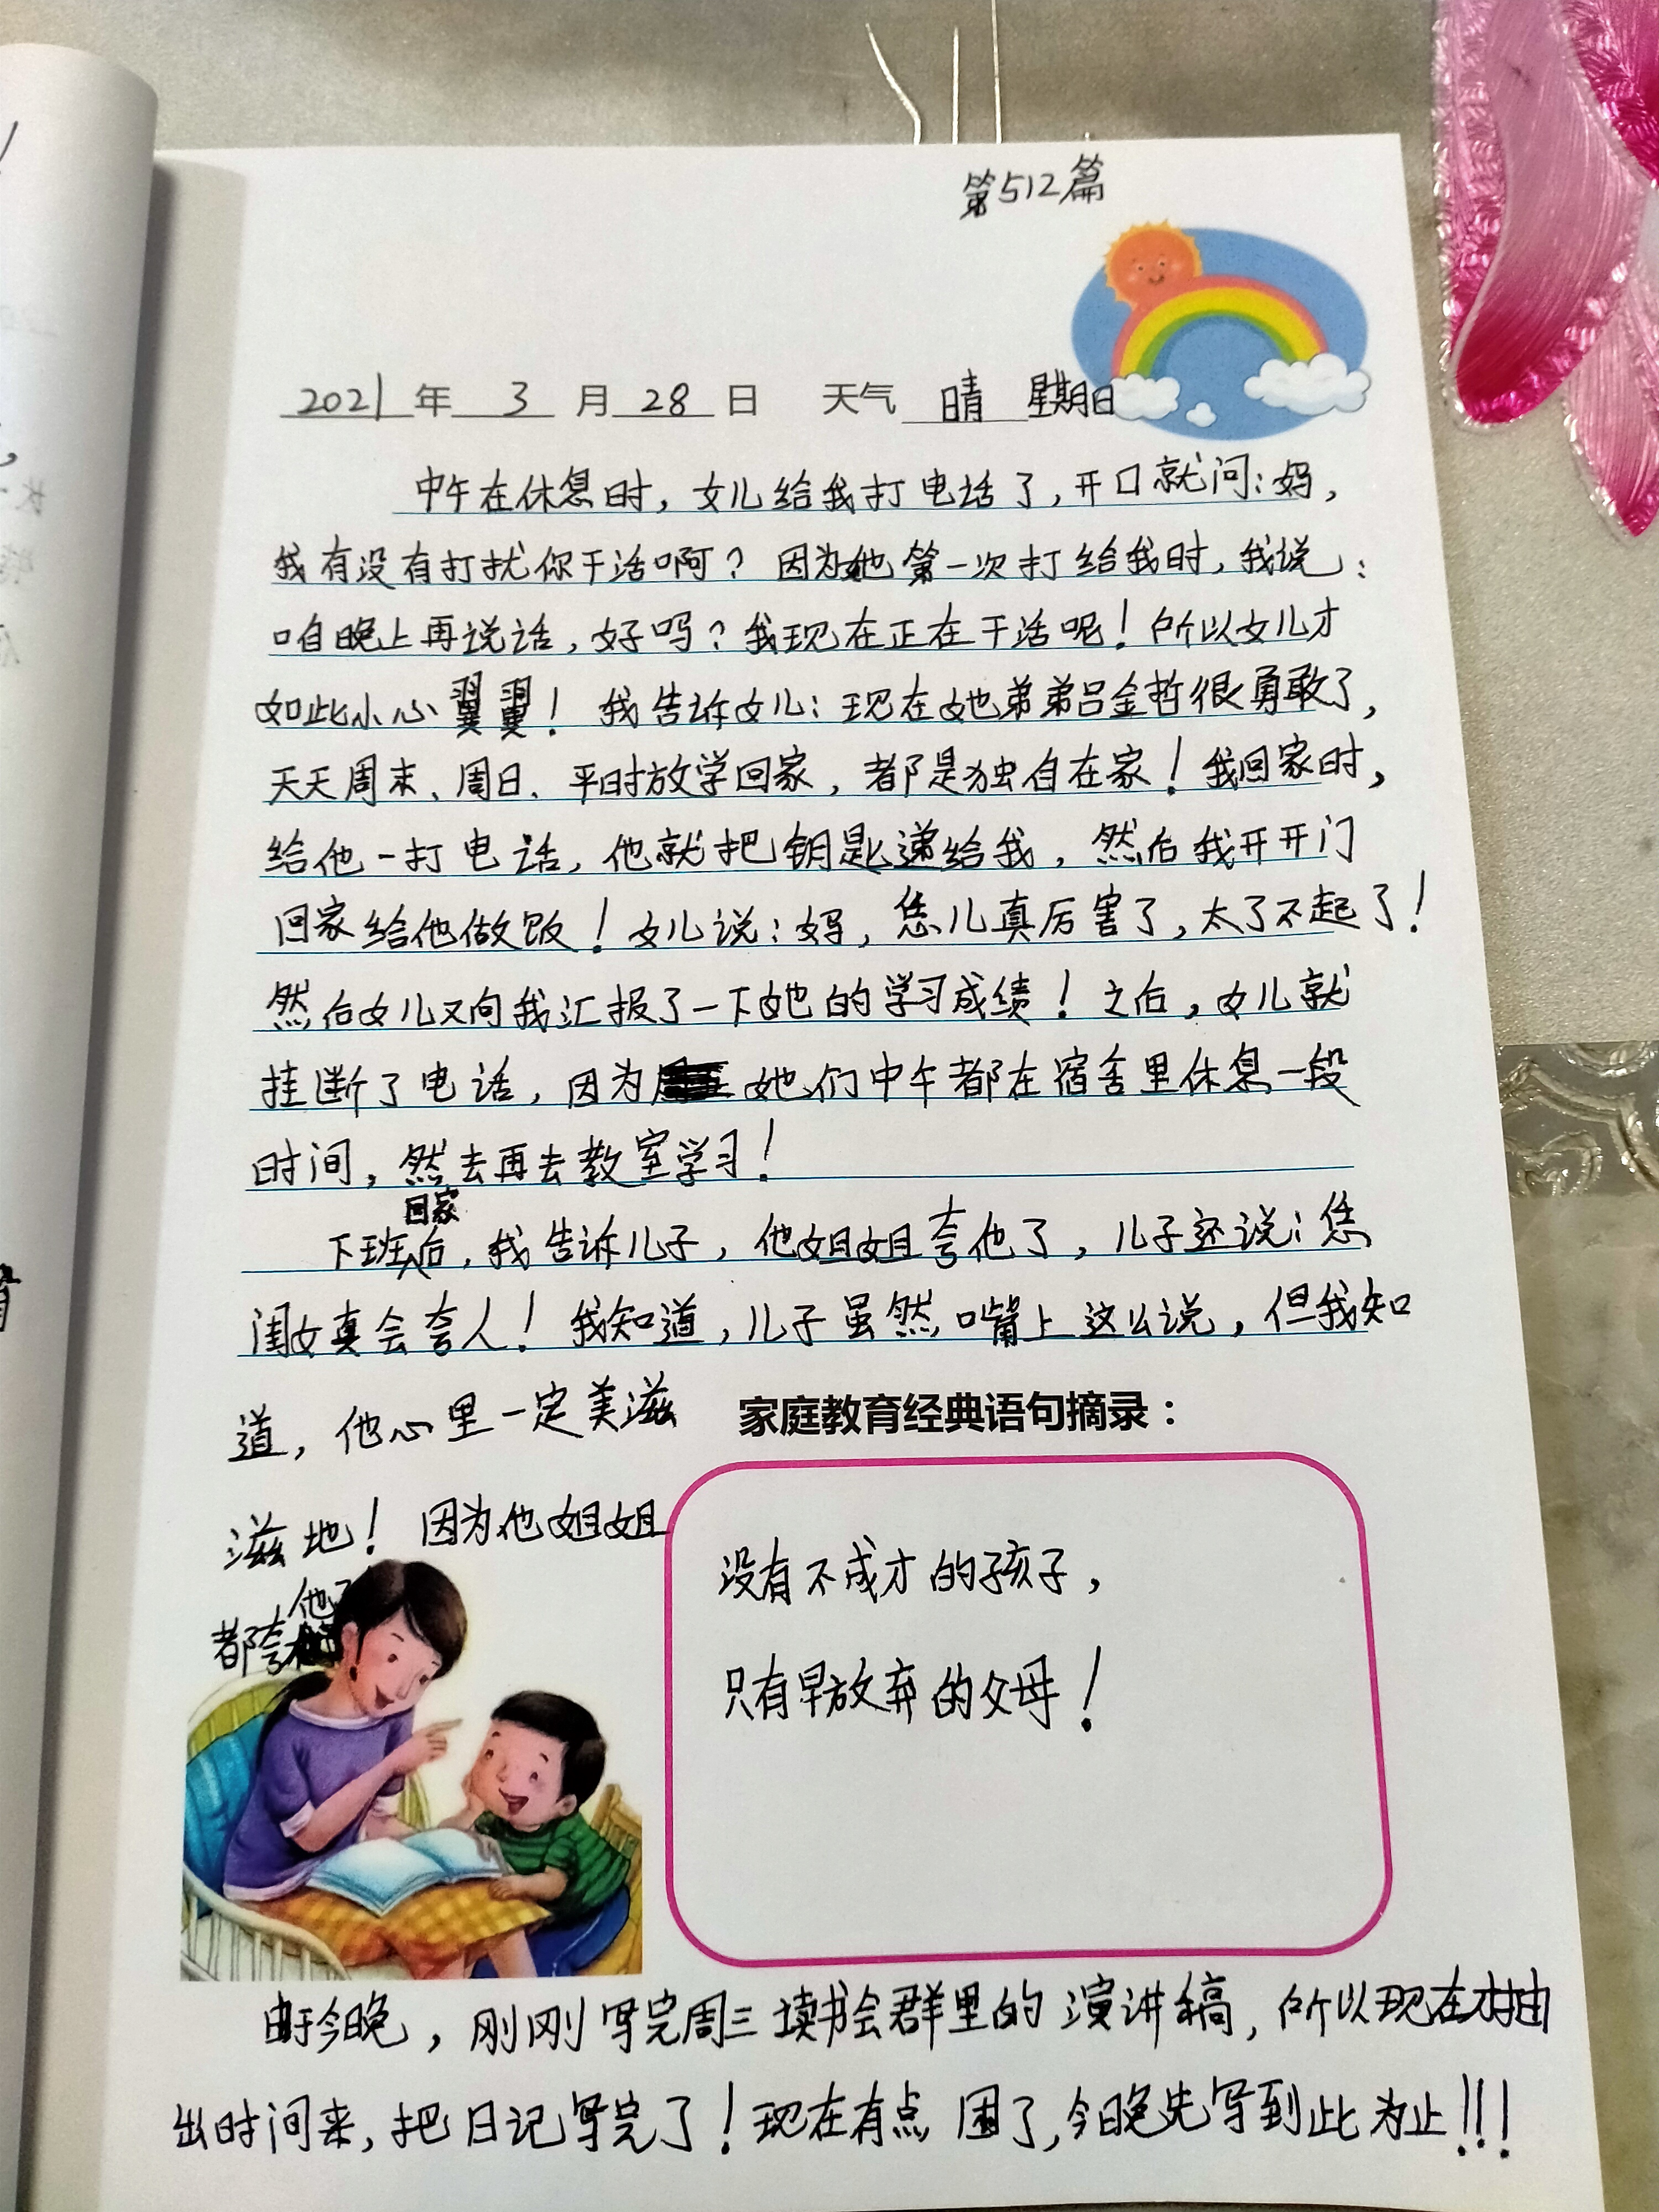 第512篇
2021年 3 月 28 日 天气 晴 星期日
中午在休息时，女儿给我打电话了，开口就问：妈，
我有没有打扰你干活啊？因为她第一次打给我时，我说：
咱晚上再说话，好吗？我现在正在干活呢！所以女儿才
如此小心翼翼！我告诉女儿：现在她弟弟吕金哲很勇敢了，
天天周末、周日、平时放学回家，都是独自在家！我回家时，
给他一打电话，他就把钥匙递给我，然后我开开门
回家给他做饭！女儿说：妈，恁儿真厉害了，太了不起了！
然后女儿又向我汇报了一下她的学习成绩！之后，女儿就
挂断了电话，因为她们中午都在宿舍里休息一段
时间，然去再去教室学习！
下班回家后，我告诉儿子，他姐姐夸他了，儿子还说：恁
闺女真会夸人！我知道，儿子虽然嘴上这么说，但我知
道，他心里一定美滋
滋地！因为他姐姐
都夸他了
家庭教育经典语句摘录：
没有不成才的孩子，
只有早放弃的父母！
由于今晚，刚刚写完周三读书会群里的演讲稿，所以现在才抽
出时间来，把日记写完了！现在有点困了，今晚先写到此为止!!!